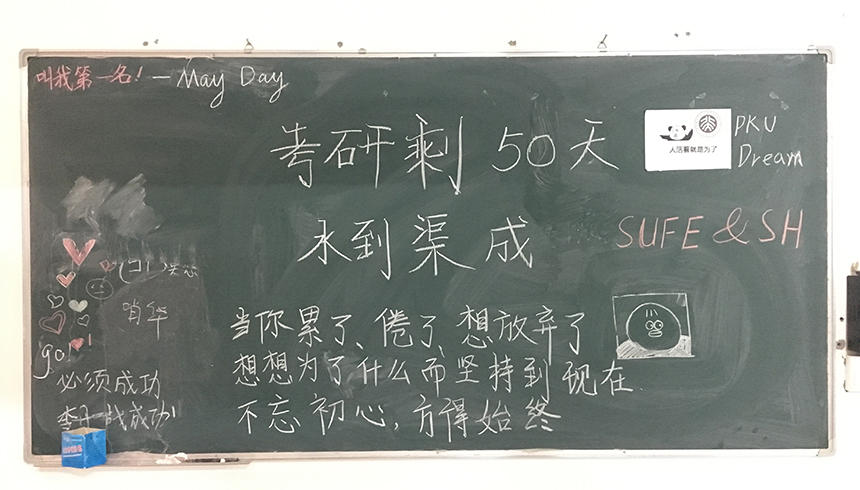 叫我第一名! — May Day
考研剩50天
水到渠成
PKU
Dream
人活着就是为了
SUFE & SH
当你累了、倦了、想放弃了
想想为了什么而坚持到现在
不忘初心,方得始终
go!
必须成功
成功!